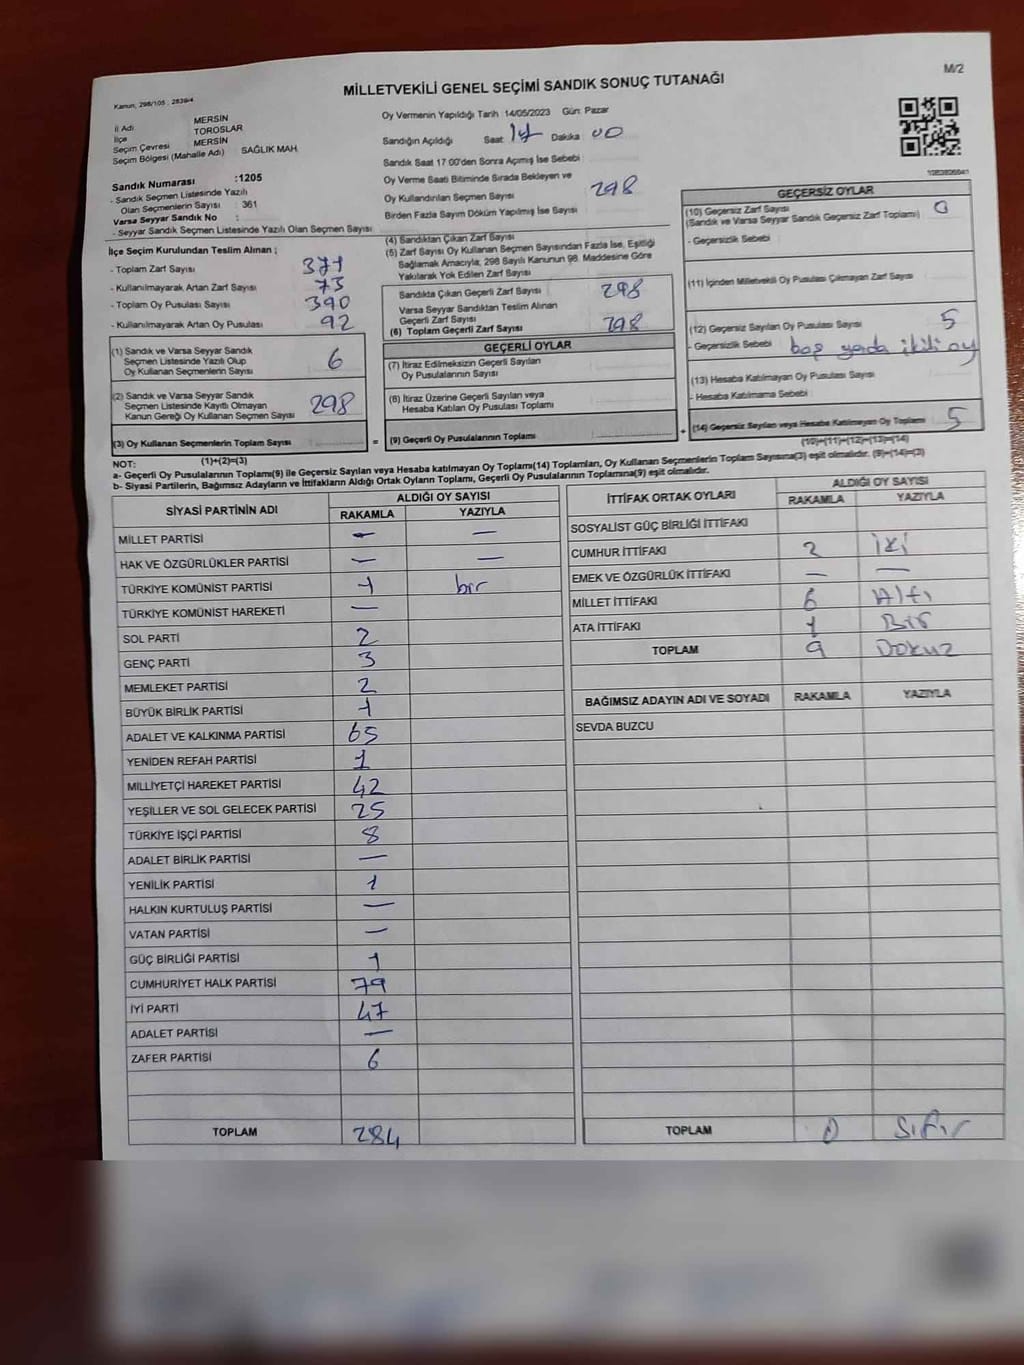 M/2
MİLLETVEKİLİ GENEL SEÇİMİ SANDIK SONUÇ TUTANAĞI
Kanun, 298/105 ; 2839/4
İl Adı MERSİN
İlçe TOROSLAR
Seçim Çevresi MERSİN
Seçim Bölgesi (Mahalle Adı) SAĞLIK MAH.
Sandık Numarası :1205
- Sandık Seçmen Listesinde Yazılı
Olan Seçmenlerin Sayısı : 361
Varsa Seyyar Sandık No :
- Seyyar Sandık Seçmen Listesinde Yazılı Olan Seçmen Sayısı
Oy Vermenin Yapıldığı Tarih :14/05/2023 Gün: Pazar
Sandığın Açıldığı Saat 17 Dakika 00
Sandık Saat 17:00'den Sonra Açımış İse Sebebi
Oy Verme Saati Bitiminde Sırada Bekleyen ve
Oy Kullandırılan Seçmen Sayısı 298
Birden Fazla Sayım Döküm Yapılmış İse Sayısı
İlçe Seçim Kurulundan Teslim Alınan ;
- Toplam Zarf Sayısı 371
- Kullanılmayarak Artan Zarf Sayısı 73
- Toplam Oy Pusulası Sayısı 390
- Kullanılmayarak Artan Oy Pusulası 92
(1) Sandık ve Varsa Seyyar Sandık
Seçmen Listesinde Yazılı Olup
Oy Kullanan Seçmenlerin Sayısı 6
(2) Sandık ve Varsa Seyyar Sandık
Seçmen Listesinde Kayıtlı Olmayan
Kanun Gereği Oy Kullanan Seçmen Sayısı 298
(3) Oy Kullanan Seçmenlerin Toplam Sayısı
(1)+(2)=(3)
(4) Sandıktan Çıkan Zarf Sayısı
(5) Zarf Sayısı Oy Kullanan Seçmen Sayısından Fazla İse, Eşitliği
Sağlamak Amacıyla, 298 Sayılı Kanunun 98. Maddesine Göre
Yakılarak Yok Edilen Zarf Sayısı
Sandıkta Çıkan Geçerli Zarf Sayısı 298
Varsa Seyyar Sandıktan Teslim Alınan
Geçerli Zarf Sayısı
(6) Toplam Geçerli Zarf Sayısı 298
GEÇERLİ OYLAR
(7) İtiraz Edilmeksizin Geçerli Sayılan
Oy Pusulalarının Sayısı
(8) İtiraz Üzerine Geçerli Sayılan veya
Hesaba Katılan Oy Pusulası Toplamı
= (9) Geçerli Oy Pusulalarının Toplamı +
GEÇERSİZ OYLAR
(10) Geçersiz Zarf Sayısı 0
(Sandık ve Varsa Seyyar Sandık Geçersiz Zarf Toplamı)
- Geçersizlik Sebebi
(11) İçinden Milletvekili Oy Pusulası Çıkmayan Zarf Sayısı
(12) Geçersiz Sayılan Oy Pusulası Sayısı 5
- Geçersizlik Sebebi boş yada ikili oy
(13) Hesaba Katılmayan Oy Pusulası Sayısı
- Hesaba Katılmama Sebebi
(14) Geçersiz Sayılan veya Hesaba Katılmayan Oy Toplamı 5
(10)+(11)+(12)+(13)=(14)
NOT:
a- Geçerli Oy Pusulalarının Toplamı(9) ile Geçersiz Sayılan veya Hesaba katılmayan Oy Toplamı(14) Toplamları, Oy Kullanan Seçmenlerin Toplam Sayısına(3) eşit olmalıdır. (9)+(14)=(3)
b- Siyasi Partilerin, Bağımsız Adayların ve İttifakların Aldığı Ortak Oyların Toplamı, Geçerli Oy Pusulalarının Toplamına(9) eşit olmalıdır.
SİYASİ PARTİNİN ADI ALDIĞI OY SAYISI
RAKAMLA YAZIYLA
MİLLET PARTİSİ — —
HAK VE ÖZGÜRLÜKLER PARTİSİ — —
TÜRKİYE KOMÜNİST PARTİSİ 1 bir
TÜRKİYE KOMÜNİST HAREKETİ —
SOL PARTİ 2
GENÇ PARTİ 3
MEMLEKET PARTİSİ 2
BÜYÜK BİRLİK PARTİSİ 1
ADALET VE KALKINMA PARTİSİ 65
YENİDEN REFAH PARTİSİ 1
MİLLİYETÇİ HAREKET PARTİSİ 42
YEŞİLLER VE SOL GELECEK PARTİSİ 25
TÜRKİYE İŞÇİ PARTİSİ 8
ADALET BİRLİK PARTİSİ —
YENİLİK PARTİSİ 1
HALKIN KURTULUŞ PARTİSİ —
VATAN PARTİSİ —
GÜÇ BİRLİĞİ PARTİSİ 1
CUMHURİYET HALK PARTİSİ 79
İYİ PARTİ 47
ADALET PARTİSİ —
ZAFER PARTİSİ 6
TOPLAM 284
İTTİFAK ORTAK OYLARI ALDIĞI OY SAYISI
RAKAMLA YAZIYLA
SOSYALİST GÜÇ BİRLİĞİ İTTİFAKI
CUMHUR İTTİFAKI 2 iki
EMEK VE ÖZGÜRLÜK İTTİFAKI — —
MİLLET İTTİFAKI 6 Altı
ATA İTTİFAKI 1 Bir
TOPLAM 9 Dokuz
BAĞIMSIZ ADAYIN ADI VE SOYADI RAKAMLA YAZIYLA
SEVDA BUZCU
TOPLAM 0 Sıfır